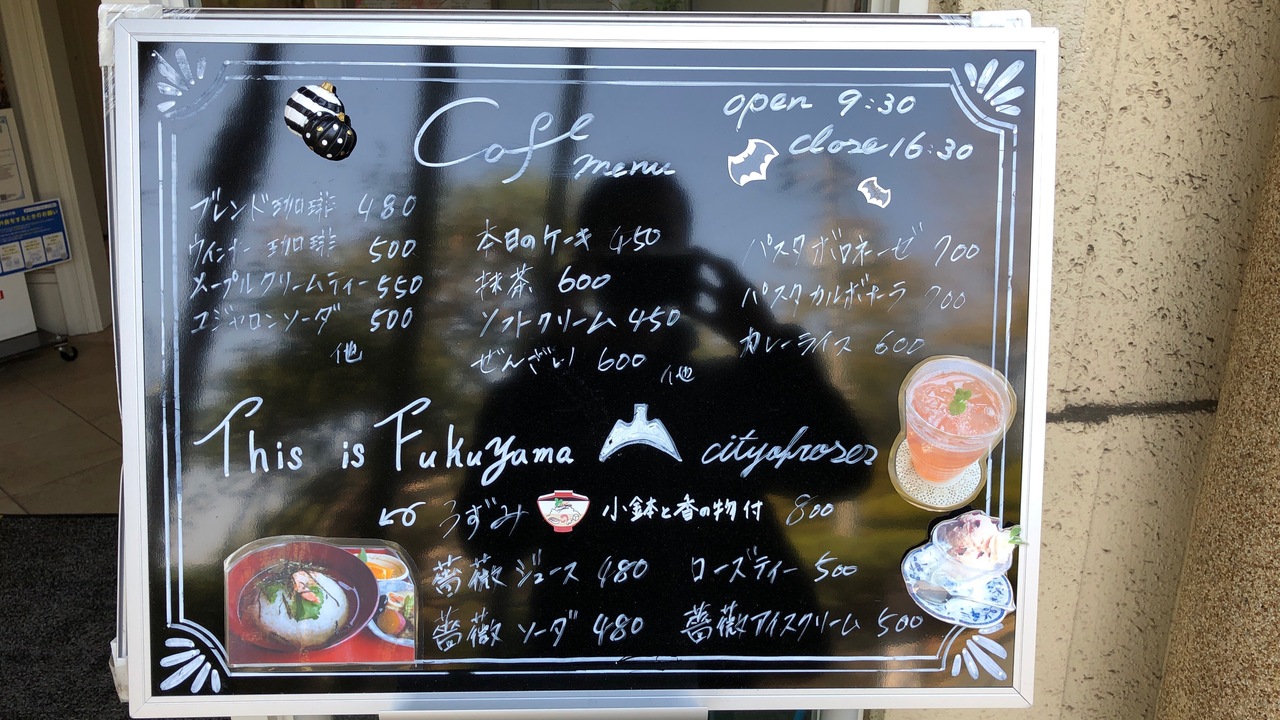 Cafe menu
open 9:30
close 16:30
ブレンド珈琲 480
ウィンナー珈琲 500
メープルクリームティー 550
ユジャロンソーダ 500
他
本日のケーキ 450
抹茶 600
ソフトクリーム 450
ぜんざい 600
他
パスタボロネーゼ 700
パスタカルボナーラ 700
カレーライス 600
This is Fukuyama city of roses
うずみ 小鉢と香の物付 800
薔薇ジュース 480 ローズティー 500
薔薇ソーダ 480 薔薇アイスクリーム 500